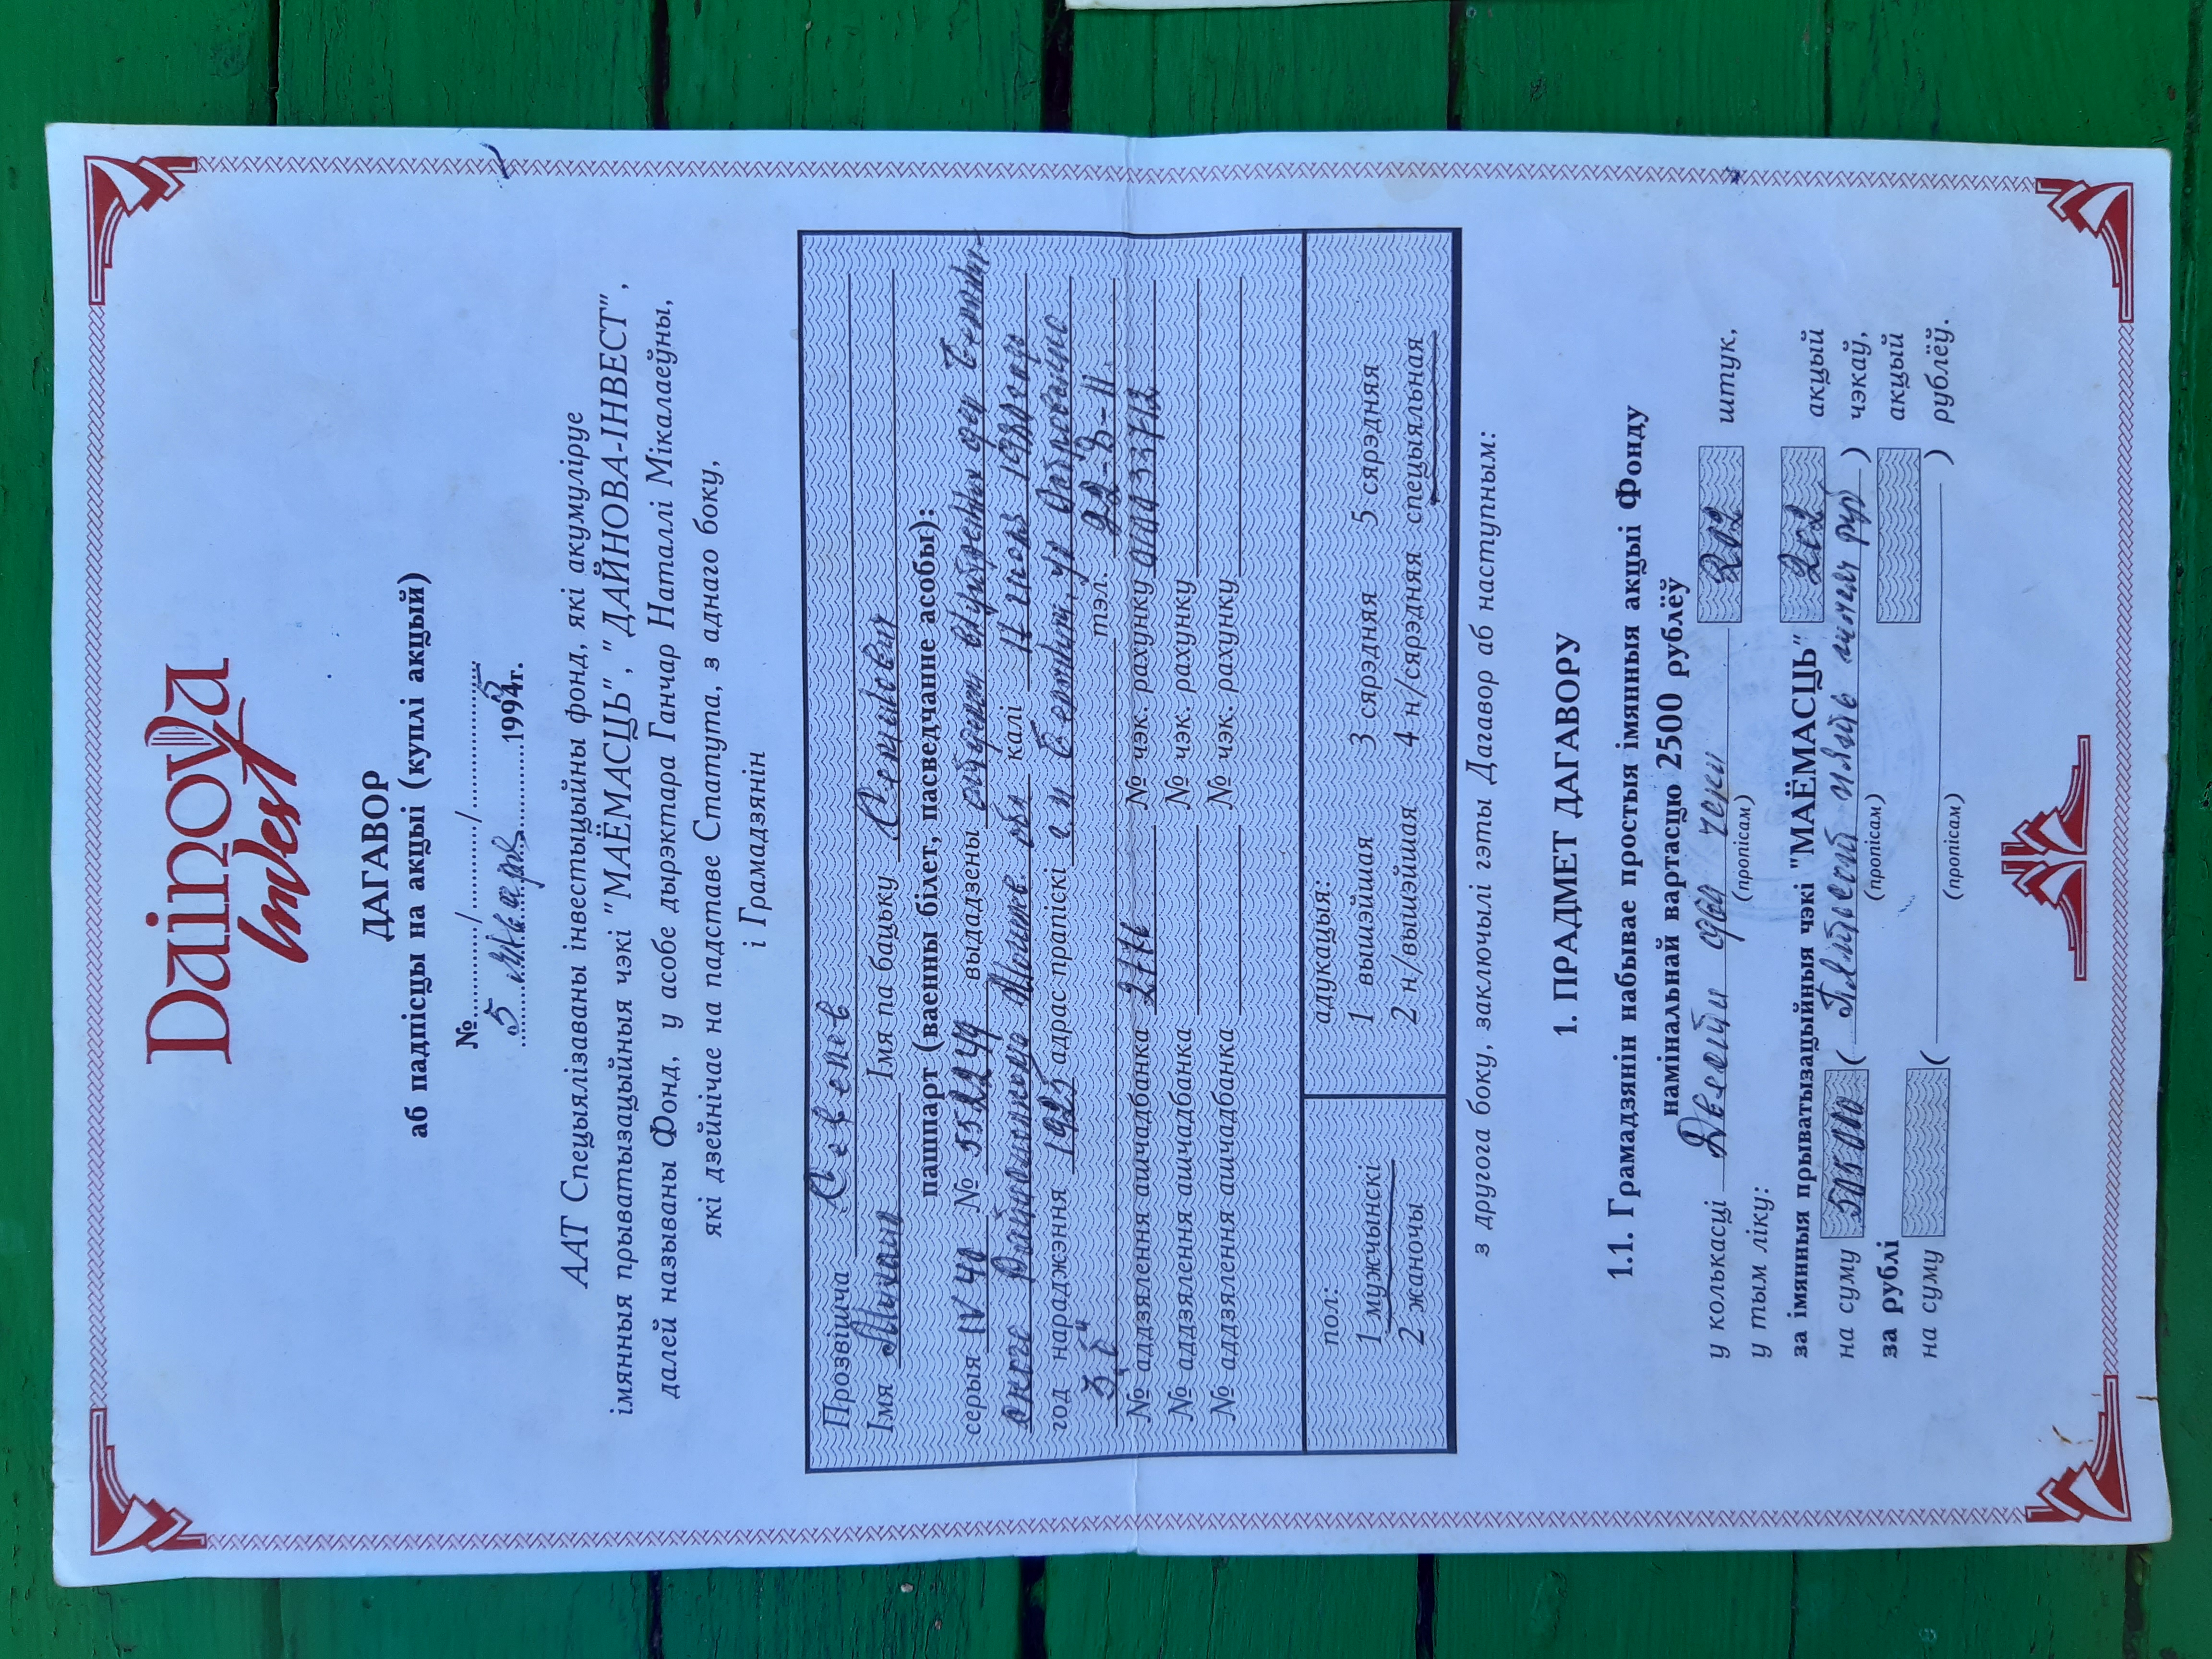 Dainova
Invest
ДАГАВОР
аб падпісцы на акцыі (куплі акцый)
№............/.........../....................
5 января 1995г.
ААТ Спецыялізаваны інвестыцыйны фонд, які акумуліруе
імянныя прыватызацыйныя чэкі "МАЁМАСЦЬ", "ДАЙНОВА-ІНВЕСТ",
далей называны Фонд, у асобе дырэктара Ганчар Наталлі Мікалаеўны,
які дзейнічае на падставе Статута, з аднаго боку,
і Грамадзянін
Прозвішча
Імя Михаил Імя па бацьку
пашпарт (ваенны білет, пасведчанне асобы):
серыя IV № 552249 выдадзены внутренних дел
Райисполкома обл калі 1980 года
год нараджэння 1925 адрас прапіскі ул Островского
3, б тэл. 22-8-11
№ аддзялення ашчадбанка 2776 № чэк. рахунку
№ аддзялення ашчадбанка № чэк. рахунку
№ аддзялення ашчадбанка № чэк. рахунку
пол: адукацыя:
1 мужчынскі 1 вышэйшая 3 сярэдняя 5 сярэдняя
2 жаночы 2 н/вышэйшая 4 н/сярэдняя спецыяльная
з другога боку, заключылі гэты Дагавор аб наступным:
1. ПРАДМЕТ ДАГАВОРУ
1.1. Грамадзянін набывае простыя імянныя акцыі Фонду
намінальнай вартасцю 2500 рублёў
у колькасці Двести два чеки 202 штук,
(пропісам)
у тым ліку:
за імянныя прыватызацыйныя чэкі "МАЁМАСЦЬ" 202 акцый
на суму 505000 ( Пятьсот пять тысяч руб ) чэкаў,
(пропісам)
за рублі акцый
на суму ( ) рублёў.
(пропісам)